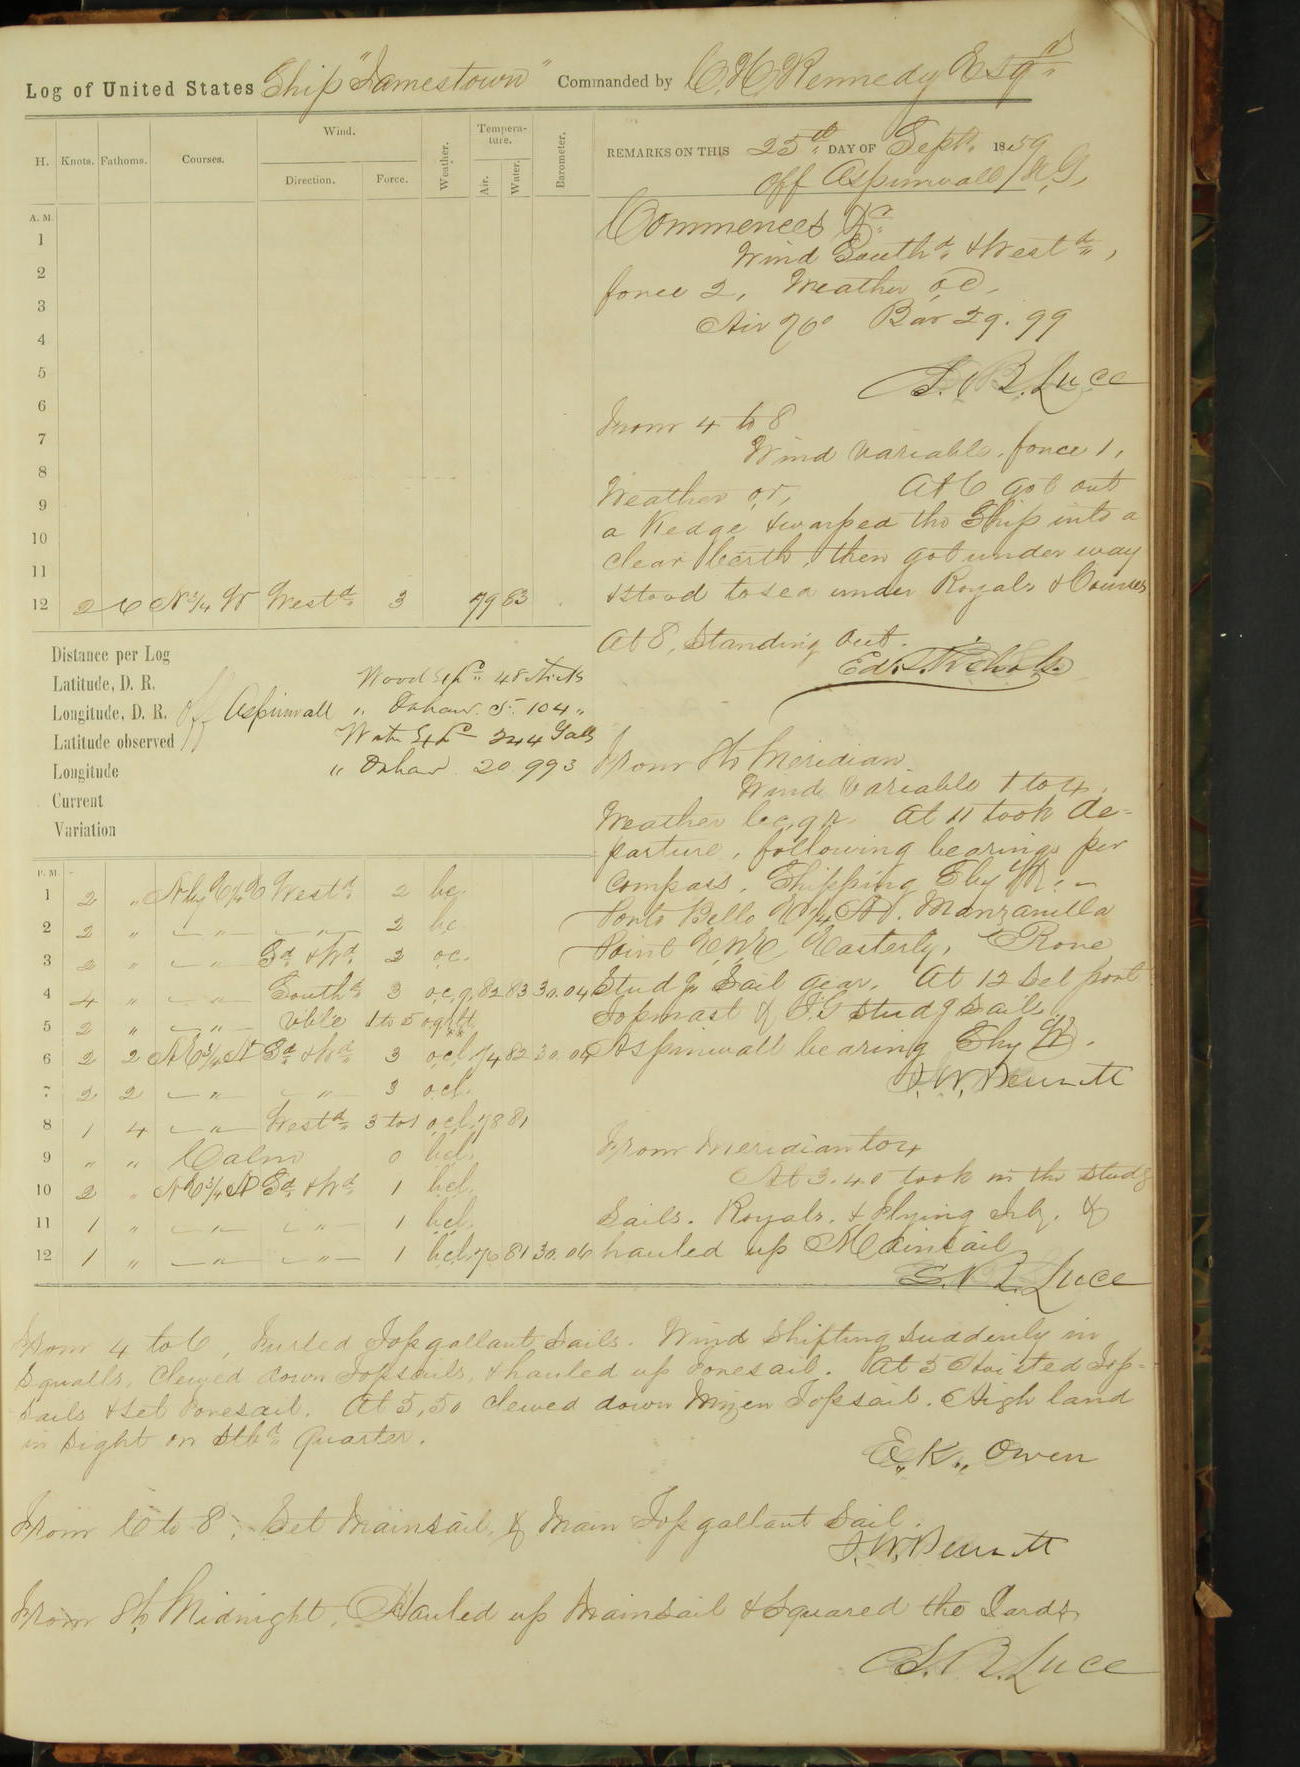 Log of United States Ship "Jamestown" Commanded by C. H. Kennedy Esqr.
H. Knots. Fathoms. Courses. Wind. Direction. Force. Weather. Tempera-ture. Air. Water. Barometer.
REMARKS ON THIS 25th DAY OF Sept. 1859
off Aspinwall N. G.
A. M.
1
2
3
4
5
6
7
8
9
10
11
12 2 6 N 3/4 W Westd 3 79 83
Commences &c
Wind Southd & Westd,
force 2, Weather o,c,
Air 76° Bar 29.99
S. B. Luce
From 4 to 8
Wind variable, force 1,
Weather o,r, At 6 got out
a Kedge & warped the Ship into a
clear berth, then got under way
& stood to sea under Royals & Courses
At 8, Standing out.
Distance per Log
Latitude, D. R.
Longitude, D. R. off Aspinwall
Latitude observed
Longitude
Current
Variation
Wood Exp 48 sticks
" 104 "
Water Exp 244 Galls
" 20.993
From 8 to Meridian
Wind variable 1 to 4,
Weather b,c,q,r. At 11 took de-
parture, following bearings per
Compass. Shipping S by W. –
Porto Bello E 1/4 N. Manzanilla
Point Easterly, Rove
Studg Sail gear. At 12 Set port
Topmast & T. G. studg Sails.
Aspinwall bearing S by W.
P. M.
1 2 " Westd 2 bc.
2 2 " — " — — " — 2 bc
3 2 " — " — Sd & Wd 2 o.c.
4 4 " — " — Southd 3 o.c.q. 82 83 30.04
5 2 " — " — Vble 1 to 5
6 2 2 N E 3/4 N Sd & Wd 3 o.c.l. 74 82 30.04
7 2 2 — " — — " — 3 o.c.l.
8 1 4 — " — Westd 3 to 1 o.c.l. 78 81
9 " " Calm 0 b.c.l.
10 2 " N E 3/4 N Sd & Wd 1 b.c.l.
11 1 " — " — — " — 1 b.c.l.
12 1 " — " — — " — 1 b.c.l. 76 81 30.06
From Meridian to 4
At 3.40 took in the studg
Sails. Royals. & Flying Jib. &
hauled up Mainsail
S. B. Luce
From 4 to 6, Furled Topgallant Sails. Wind Shifting suddenly in
Squalls, Clewed down Topsails, & hauled up Foresail. At 5 Hoisted Top-
sails & set Foresail. At 5,50 clewed down Mizen Topsail. High land
in sight on Stbd Quarter.
E. K. Owen
From 6 to 8, Set Mainsail, & Main Topgallant Sail.
From 8 to Midnight, Hauled up Mainsail & Squared the Yards
S. B. Luce